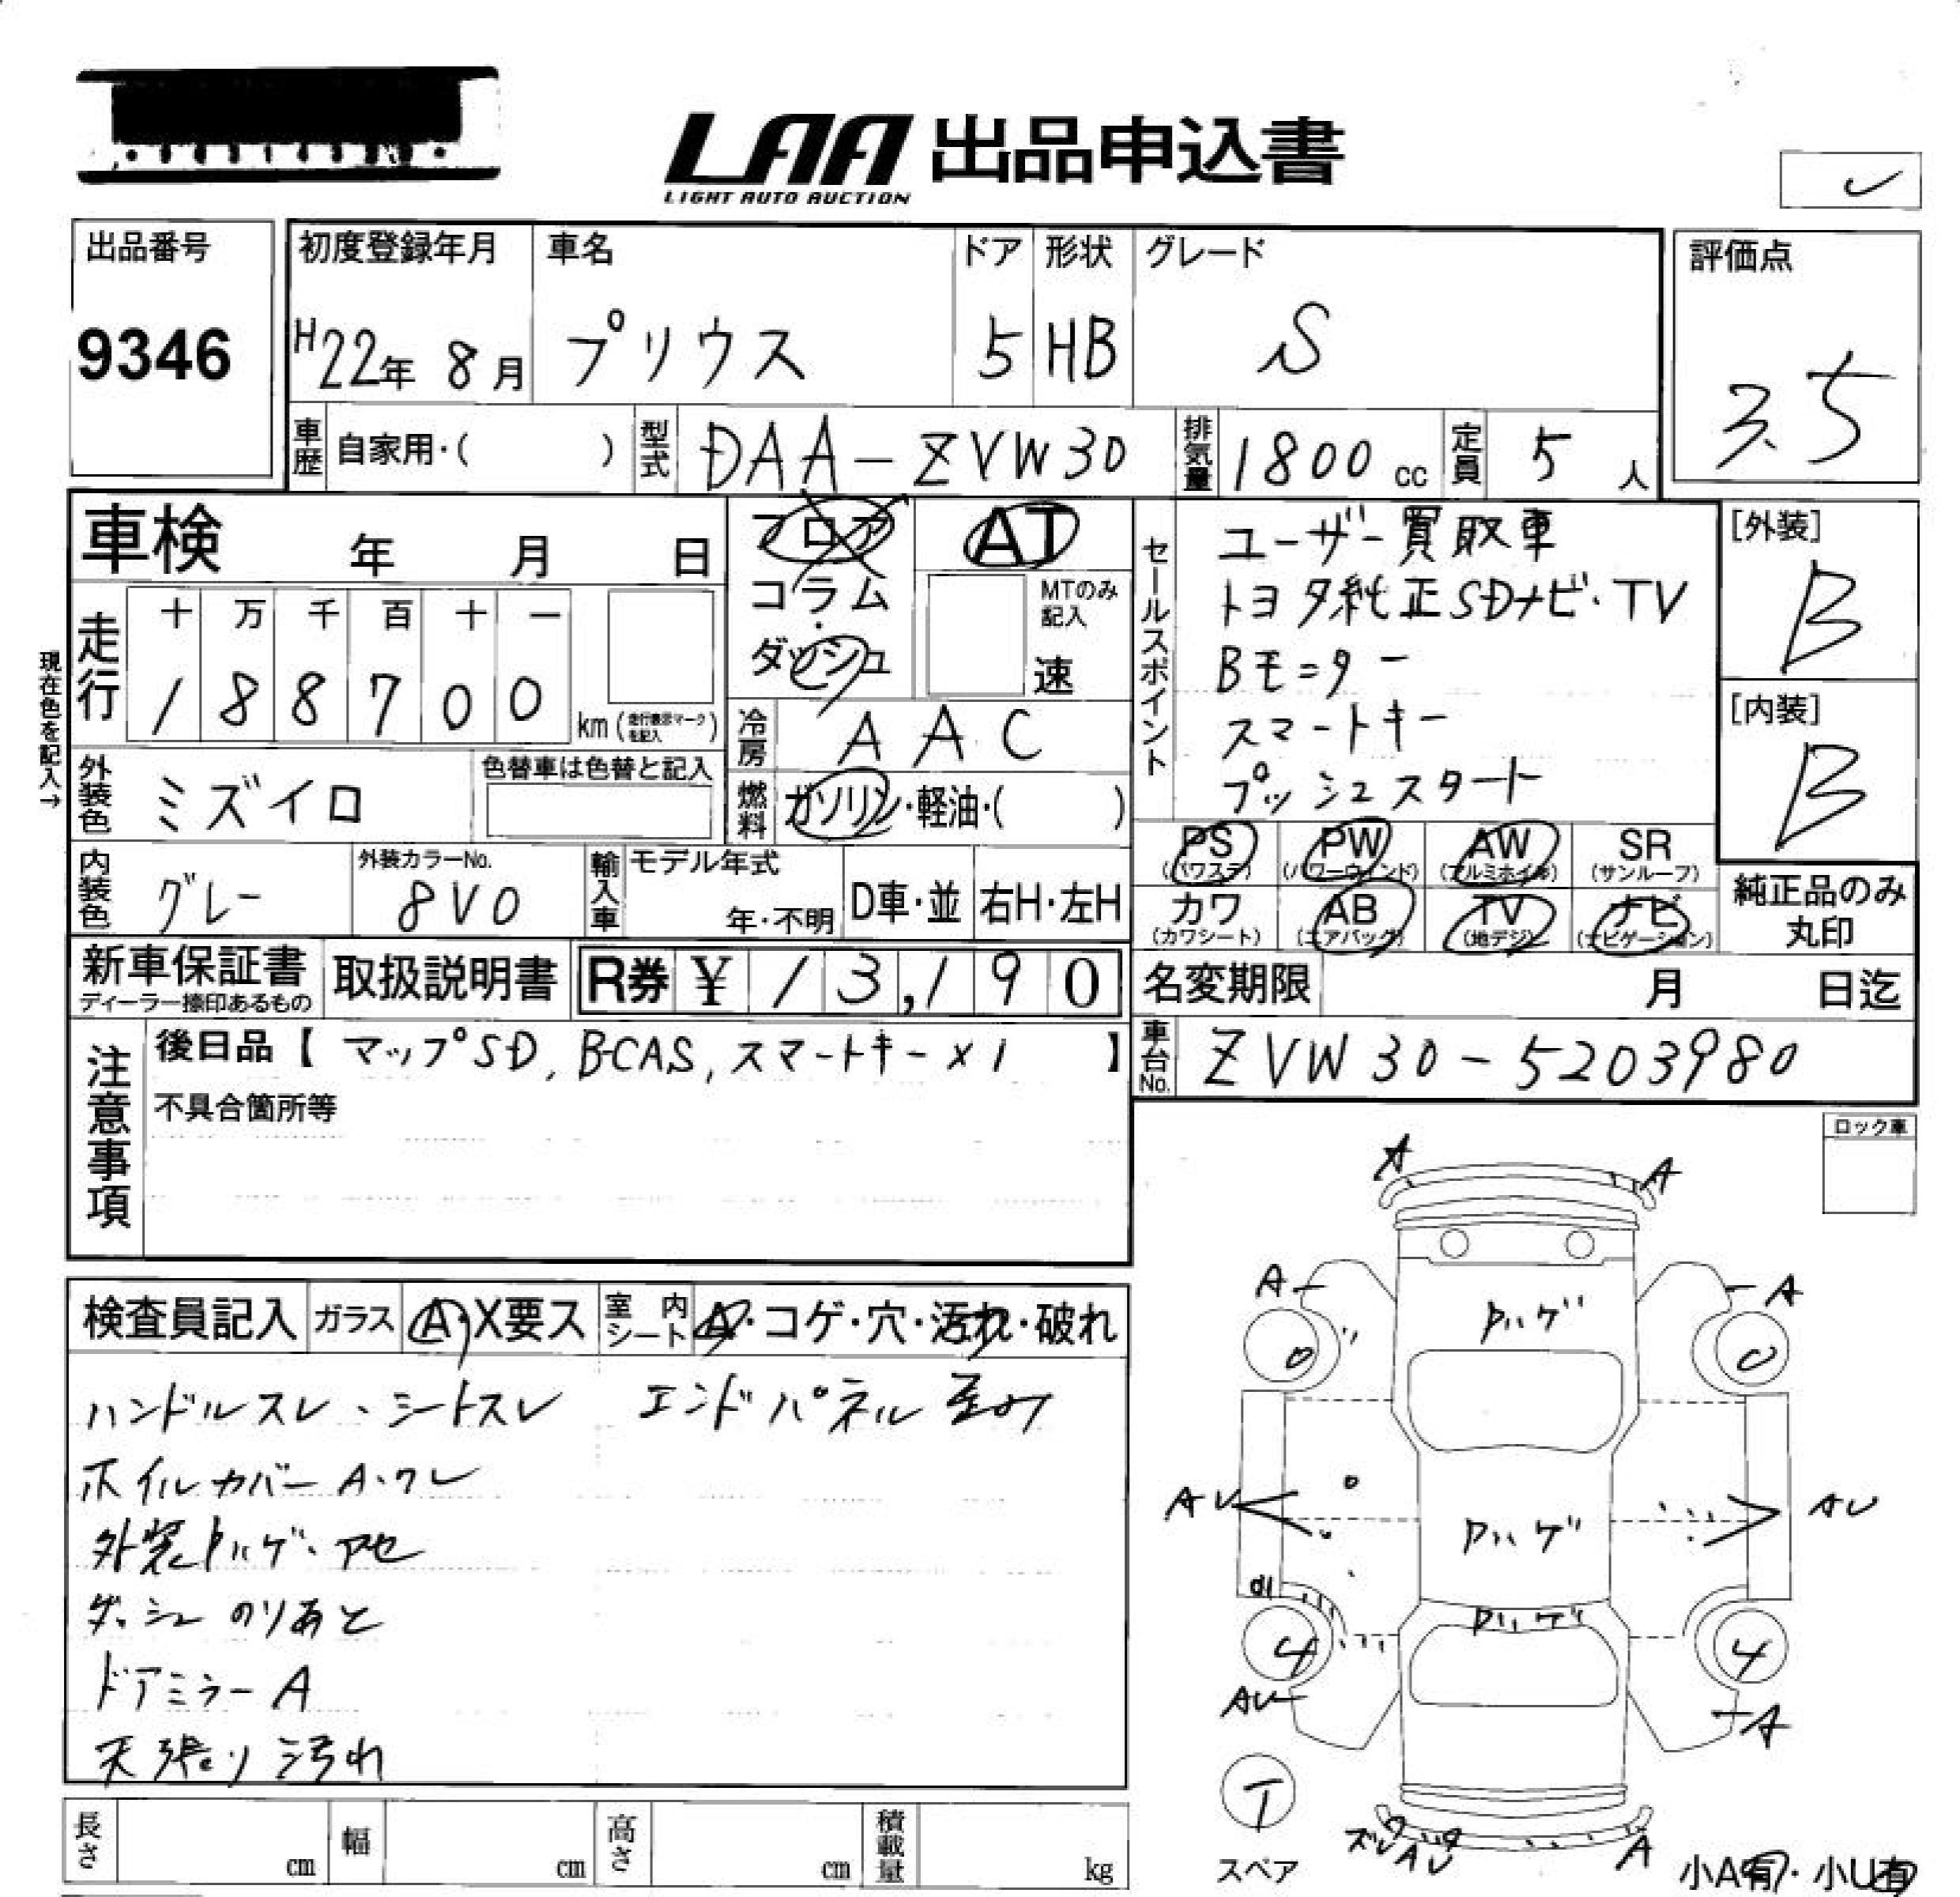 LAA 出品申込書
LIGHT AUTO AUCTION
出品番号
9346
初度登録年月
H22年 8月
車名
プリウス
ドア
5
形状
HB
グレード
S
評価点
3.5
車歴 自家用・( )
型式 DAA-ZVW30
排気量 1800 cc
定員 5 人
車検 年 月 日
フロア
コラム
・
ダッシュ
AT
MTのみ記入
速
セールスポイント
ユーザー買取車
トヨタ純正SDナビ・TV
Bモニター
スマートキー
プッシュスタート
[外装]
B
[内装]
B
現在色を記入→
走行
十 万 千 百 十 一
1 8 8 7 0 0
km (走行表示マークを記入)
冷房 A A C
外装色 ミズイロ
色替車は色替と記入
燃料 ガソリン・軽油・( )
PS (パワステ)
PW (パワーウインド)
AW (アルミホイル)
SR (サンルーフ)
カワ (カワシート)
AB (エアバッグ)
TV (地デジ)
ナビ (ナビゲーション)
純正品のみ
丸印
内装色 グレー
外装カラーNo.
8V0
輸入車
モデル年式
年・不明
D車・並
右H・左H
新車保証書
ディーラー捺印あるもの
取扱説明書
R券 ¥ 13,190
名変期限 月 日迄
注意事項
後日品【マップSD, B-CAS, スマートキー×1】
不具合箇所等
車台No. ZVW30-5203980
ロック車
検査員記入
ガラス A・X要ス
室内シート A・コゲ・穴・汚れ・破れ
ハンドルスレ、シートスレ エンドパネル歪み
ホイルカバーA・ワレ
外装ハゲ・アセ
ダッシュ のりあと
ドアミラーA
天張り汚れ
A A
A A
ハゲ
AU AU
ハゲ
ハゲ
4 4
AU A
T
スペア
AU A
小A有・小U有
長さ cm
幅 cm
高さ cm
積載量 kg